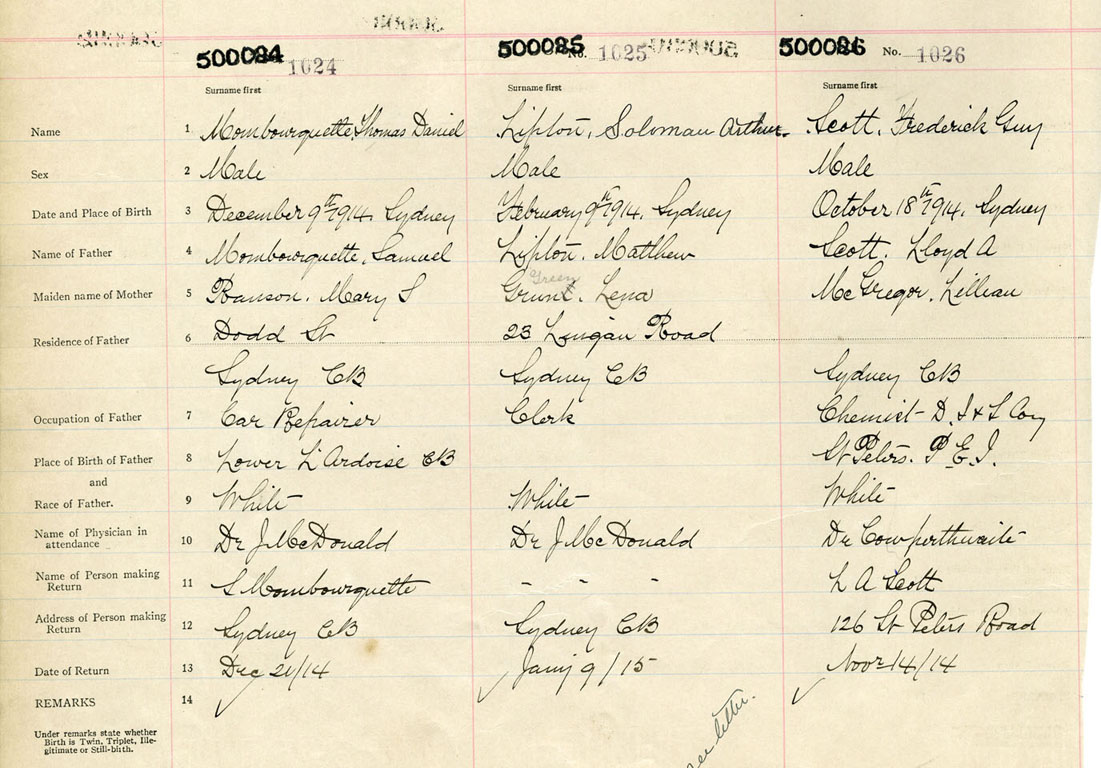 500084 1024 500085 No. 1025 500086 No. 1026
Surname first Surname first Surname first
Name 1 Mombourquette, Thomas Daniel Lipton, Soloman Arthur. Scott, Frederick Guy
Sex 2 Male Male Male
Date and Place of Birth 3 December 9th 1914, Sydney February 9th 1914, Sydney October 18th 1914, Sydney
Name of Father 4 Mombourquette, Samuel Lipton, Matthew Scott, Lloyd A
Green
Maiden name of Mother 5 Ranson, Mary S Lena McGregor, Lillian
Residence of Father 6 Dodd St 23 Lingan Road
Sydney CB Sydney CB Sydney CB
Occupation of Father 7 Car Repairer Clerk Chemist - D. I & S Coy
Place of Birth of Father 8 Lower L'Ardoise CB St Peters. P.E.I.
and
Race of Father. 9 White White White
Name of Physician in
attendance 10 Dr J McDonald Dr J McDonald Dr Cowperthwaite
Name of Person making
Return 11 S Mombourquette - - - L A Scott
Address of Person making
Return 12 Sydney CB Sydney CB 126 St Peters Road
Date of Return 13 Dec 21/14 Jany 9/15 Novr 14/14
REMARKS 14
Under remarks state whether
Birth is Twin, Triplet, Ille-
gitimate or Still-birth.
letter.